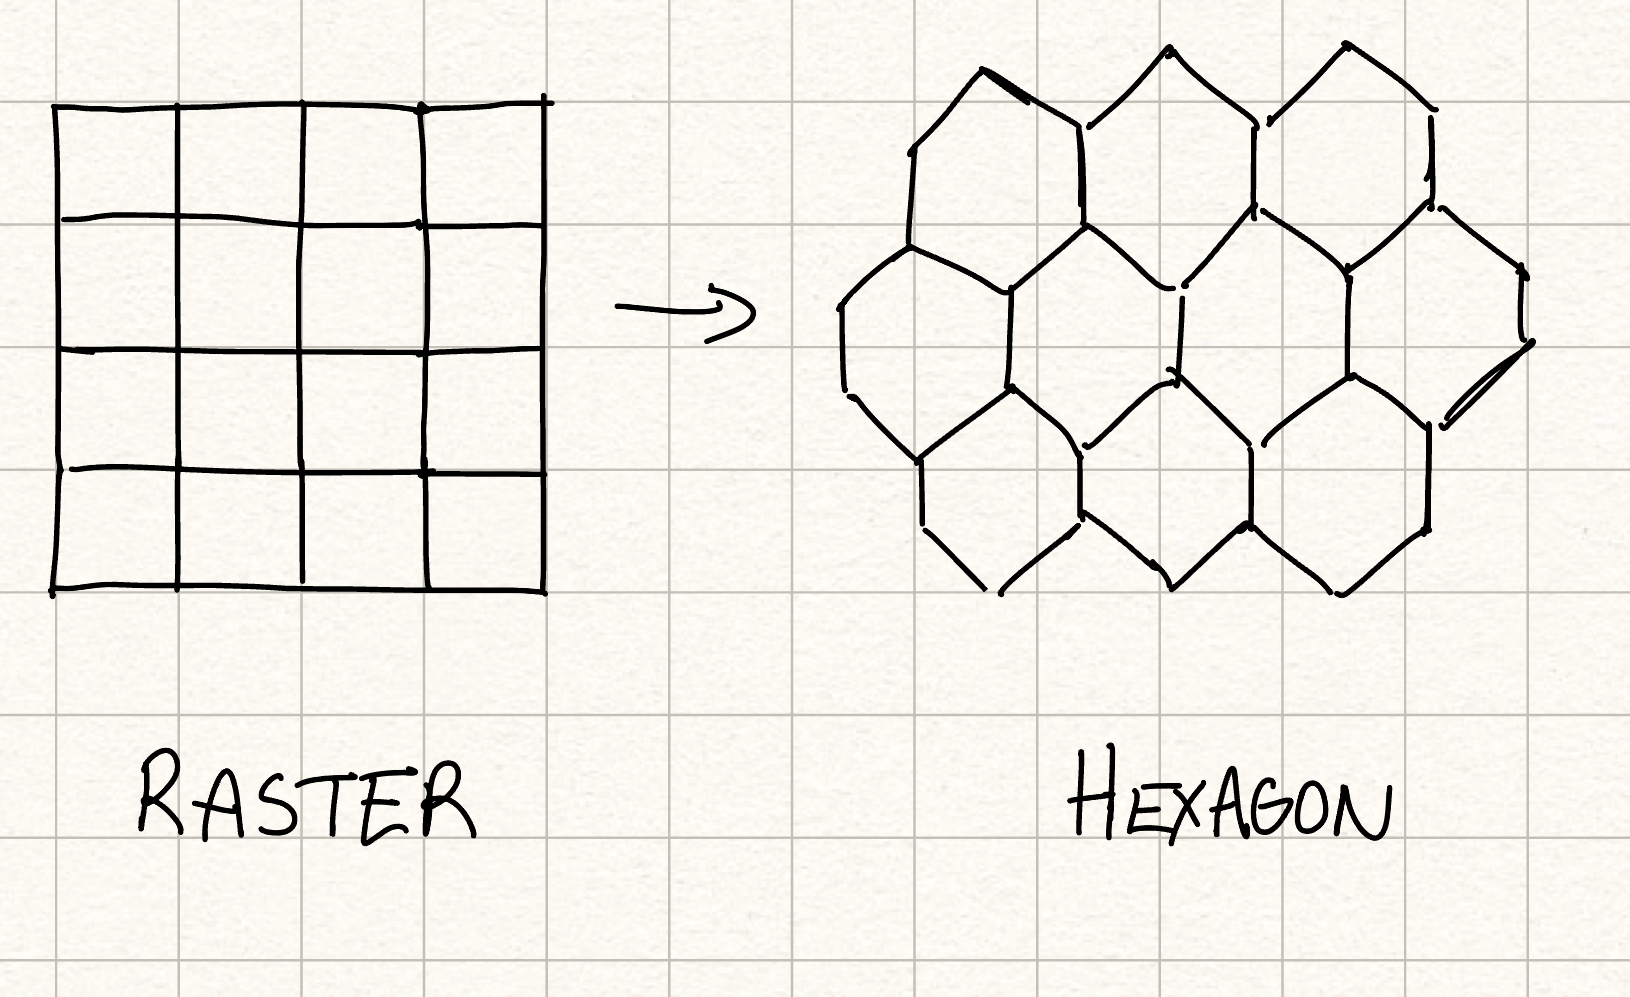 RASTER
HEXAGON